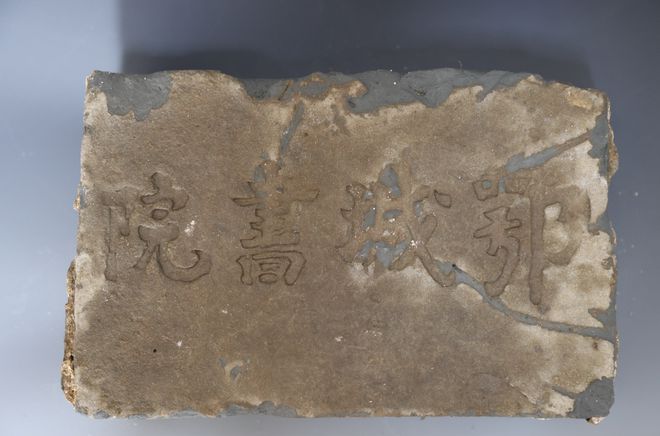 鄂城書院